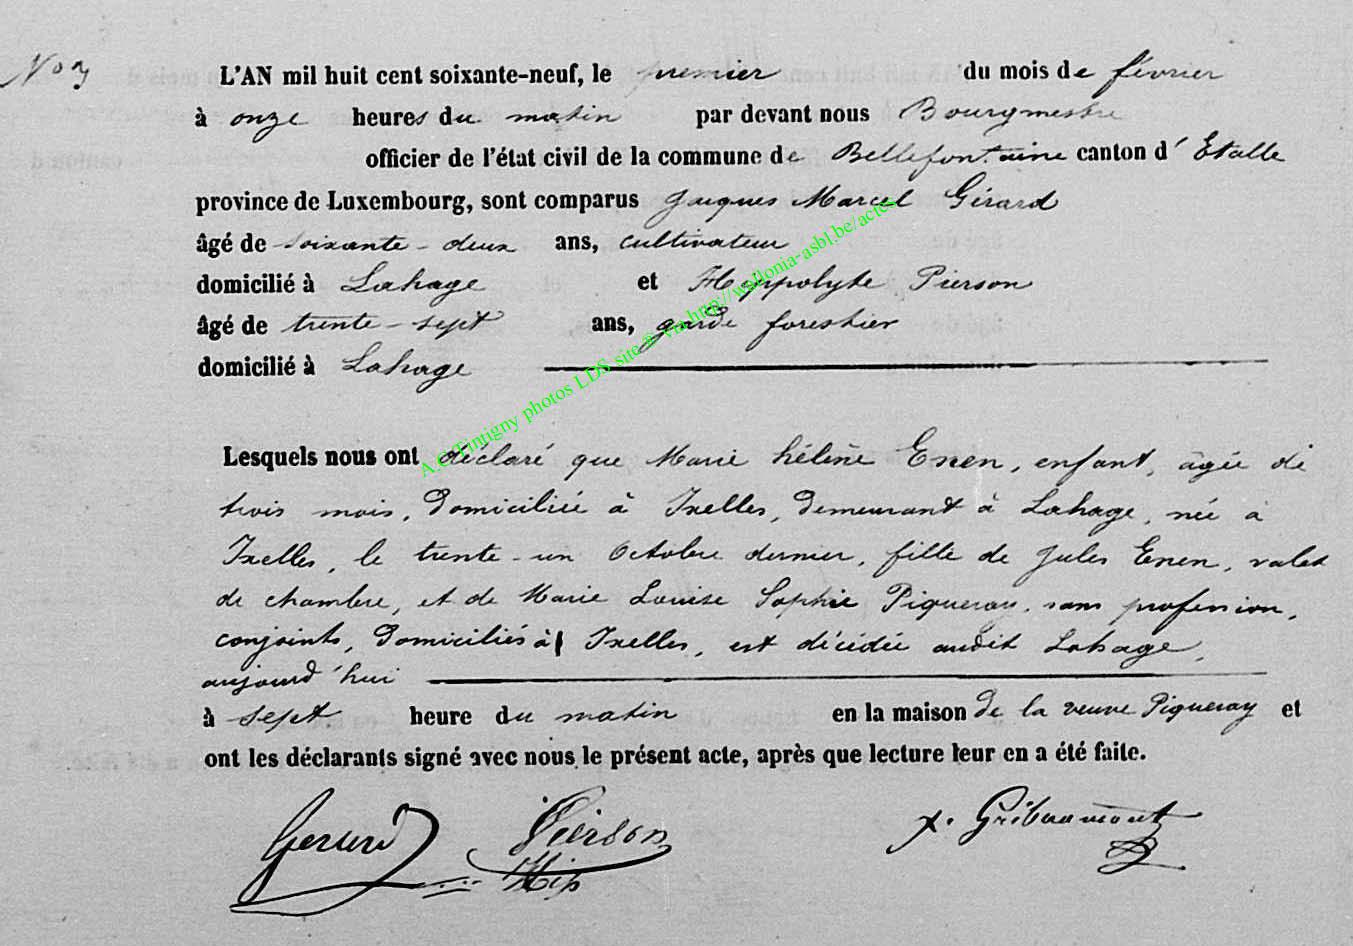 No 3
L'AN mil huit cent soixante-neuf, le premier du mois de février
à onze heures du matin par devant nous Bourgmestre
officier de l'état civil de la commune de Bellefontaine canton d'Etalle
province de Luxembourg, sont comparus Jacques Marcel Gérard
âgé de soixante-deux ans, cultivateur
domicilié à Lahage et Hyppolyte Pierson
âgé de trente-sept ans, garde forestier
domicilié à Lahage
A.G. Tintigny photos LDS site @ via http://wallonia-asbl.be/actes
Lesquels nous ont déclaré que Marie hélène Enen, enfant, âgée de
trois mois, domiciliée à Ixelles, demeurant à Lahage, née à
Ixelles, le trente-un Octobre dernier, fille de Jules Enen, valet
de chambre, et de Marie Louise Sophie Piqueray, sans profession,
conjoints, domiciliés à Ixelles, est décédée audit Lahage,
aujourd'hui
à sept heure du matin en la maison de la veuve Piqueray et
ont les déclarants signé avec nous le présent acte, après que lecture leur en a été faite.
Gerard Pierson Hip x. Gribaumont